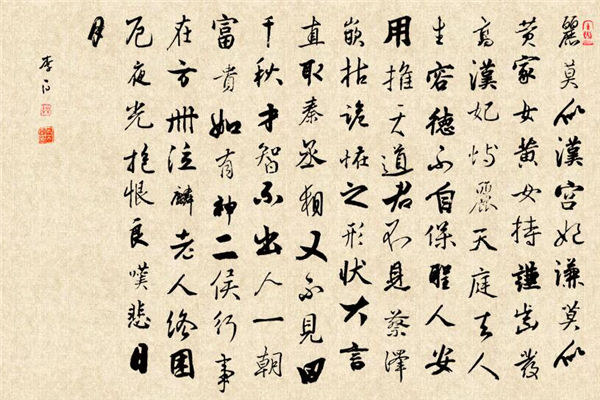 麗莫似漢宮妃謙莫似
黄家女黄女持謙齒發
高漢妃恃麗天庭去人
生容德不自保聖人安
用推天道君不見蔡澤
嵌枯詭怪之形狀大言
直取秦丞相又不見田
千秋才智不出人一朝
富貴如有神二侯行事
在方冊泣麟老人終困
厄夜光抱恨良嘆悲日
月
李白